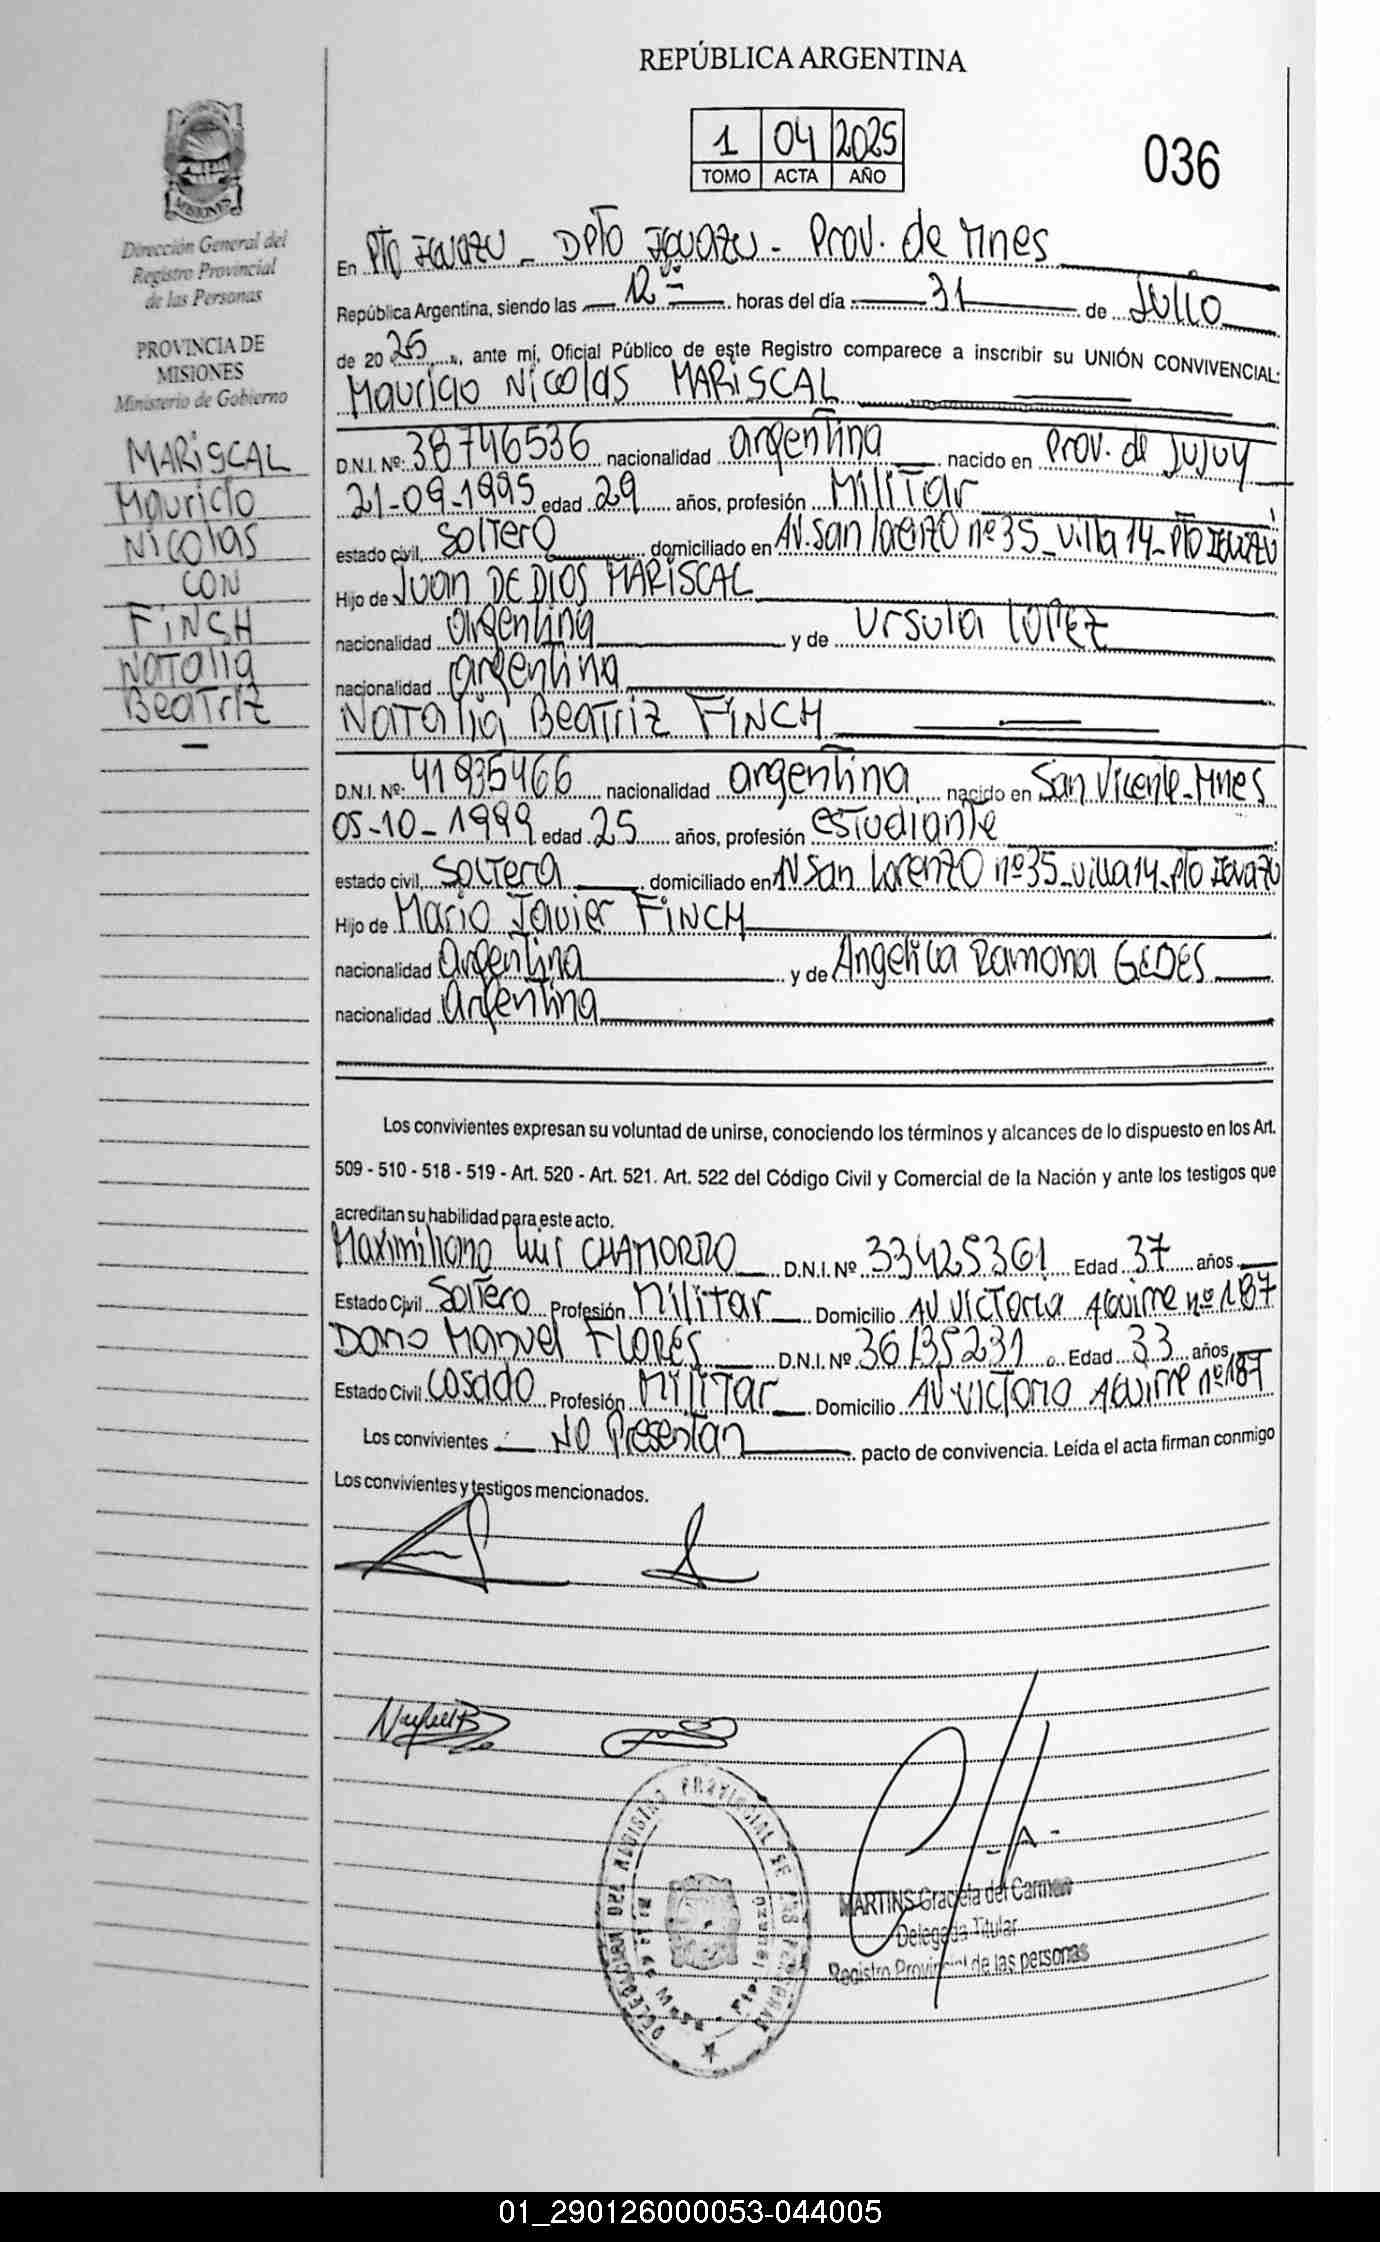 REPÚBLICA ARGENTINA
1 04 2025
TOMO ACTA AÑO
036
MISIONES
Dirección General del
Registro Provincial
de las Personas
PROVINCIA DE
MISIONES
Ministerio de Gobierno
MARISCAL
Mauricio
Nicolas
CON
FINCH
Natalia
Beatriz
En Pto Iguazu - Dpto Iguazu - Prov. de Mnes
República Argentina, siendo las 12 horas del día 31 de Julio
de 20 25, ante mí, Oficial Público de este Registro comparece a inscribir su UNIÓN CONVIVENCIAL:
Mauricio Nicolas MARISCAL
D.N.I. Nº: 38746536 nacionalidad argentina nacido en Prov. de Jujuy
21-09-1995 edad 29 años, profesión Militar
estado civil, Soltero domiciliado en AV. San Lorenzo nº 35 - Villa 14 - Pto Iguazu
Hijo de Juan DE DIOS MARISCAL
nacionalidad argentina y de Ursula LOPEZ
nacionalidad argentina
Natalia Beatriz FINCH
D.N.I. Nº: 41935466 nacionalidad argentina, nacido en San Vicente - Mnes
05-10-1999 edad 25 años, profesión estudiante
estado civil, Soltera domiciliado en AV San Lorenzo nº 35 - Villa 14 - Pto Iguazu
Hijo de Mario Javier FINCH
nacionalidad argentina y de Angelica Ramona GEDES
nacionalidad argentina
Los convivientes expresan su voluntad de unirse, conociendo los términos y alcances de lo dispuesto en los Art.
509 - 510 - 518 - 519 - Art. 520 - Art. 521. Art. 522 del Código Civil y Comercial de la Nación y ante los testigos que
acreditan su habilidad para este acto.
Maximiliano Luis CHAMORRO D.N.I. Nº 33425361 Edad 37 años
Estado Civil Soltero Profesión Militar Domicilio AV Victoria Aguirre nº 187
Dario Manuel FLORES D.N.I. Nº 36135231 Edad 33 años
Estado Civil Casado Profesión Militar Domicilio AV Victoria Aguirre nº 187
Los convivientes NO Presentan pacto de convivencia. Leída el acta firman conmigo
Los convivientes y testigos mencionados.
MARTINS Graciela del Carmen
Delegada Titular
Registro Provincial de las personas
01_290126000053-044005